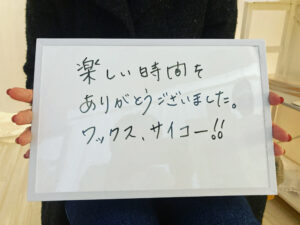 楽しい時間を
ありがとうございました。
ワックス、サイコー!!